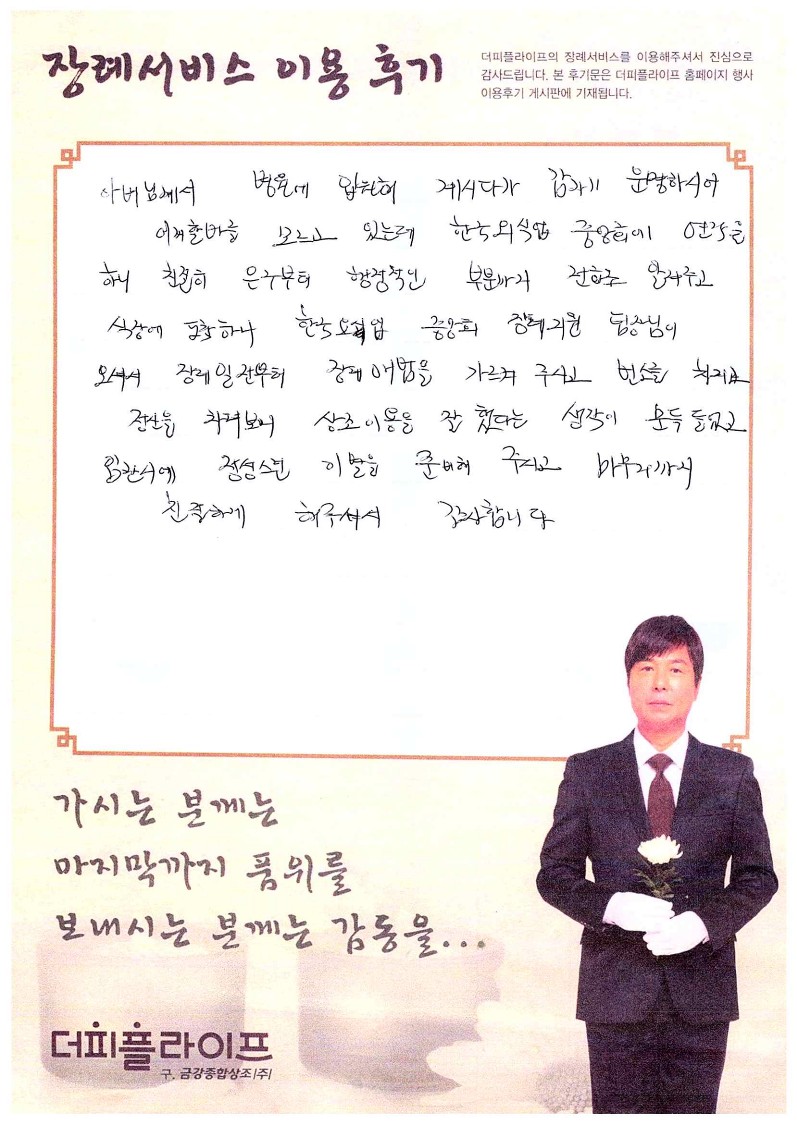 장례서비스 이용 후기
더피플라이프의 장례서비스를 이용해주셔서 진심으로
감사드립니다. 본 후기문은 더피플라이프 홈페이지 행사
이용후기 게시판에 기재됩니다.
아버님께서 병원에 입원해 계시다가 갑자기 운명하시어
어찌할바를 모르고 있는데 한국외식업 중앙회에 연락을
하니 친절히 운구부터 행정적인 부분까지 전화로 알려주고
식장에 도착하니 한국외식업 중앙회 장례지원 팀장님이
오셔서 장례일정부터 장례예법을 가르쳐 주시고 빈소를 차리고
정신을 차려보니 상조이용을 잘 했다는 생각이 문득 들었고
입관시에 정성스런 이별을 준비해 주시고 마무리까지
친절하게 해주셔서 감사합니다
가시는 분께는
마지막까지 품위를
보내시는 분께는 감동을...
더피플라이프
구. 금강종합상조(주)